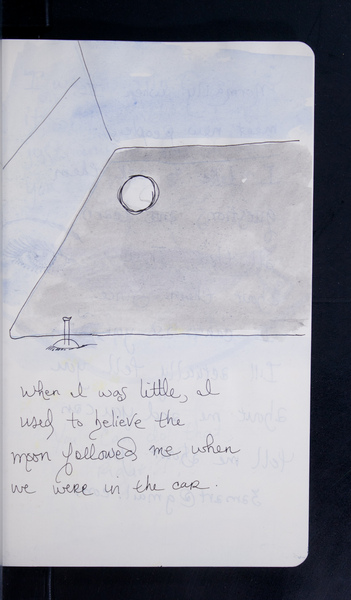 when I was little, I
used to believe the
moon followed me when
we were in the car.